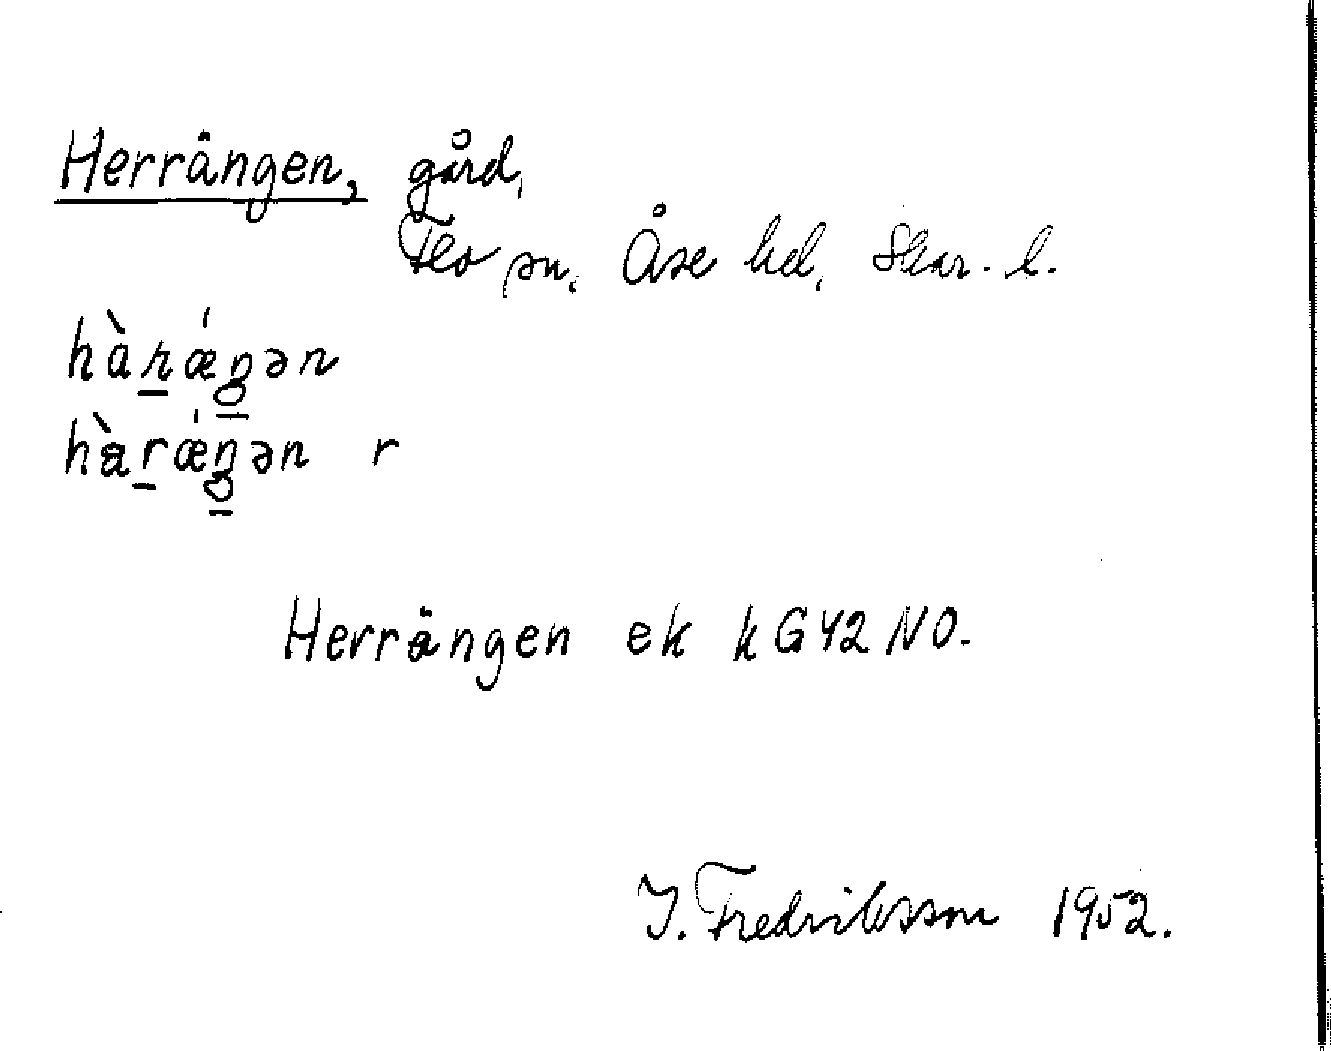 Herrängen, gård,
Flo sn, Åse hd, Skar. l.
hàrǽŋən
hàrǽŋən r
Herrängen ek k G42 NO.
I. Fredriksson 1952.